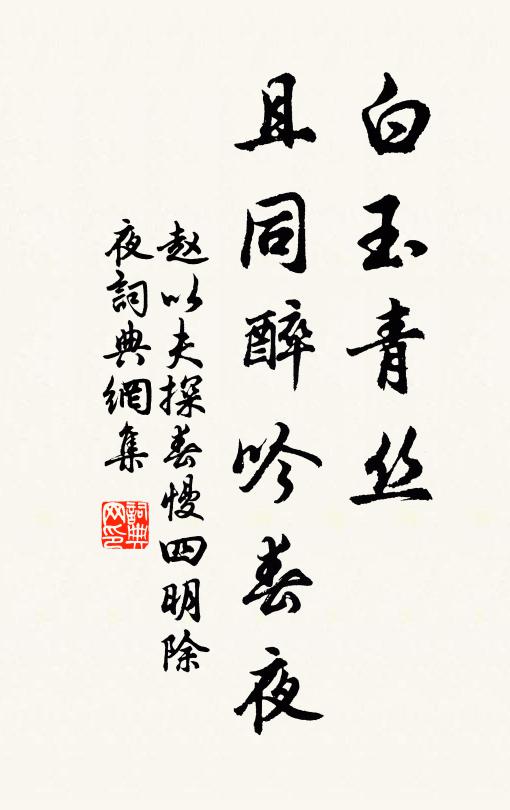 白玉青丝
且同醉吟春夜
赵以夫探春慢四明除
夜詞典網集
詞典
网印